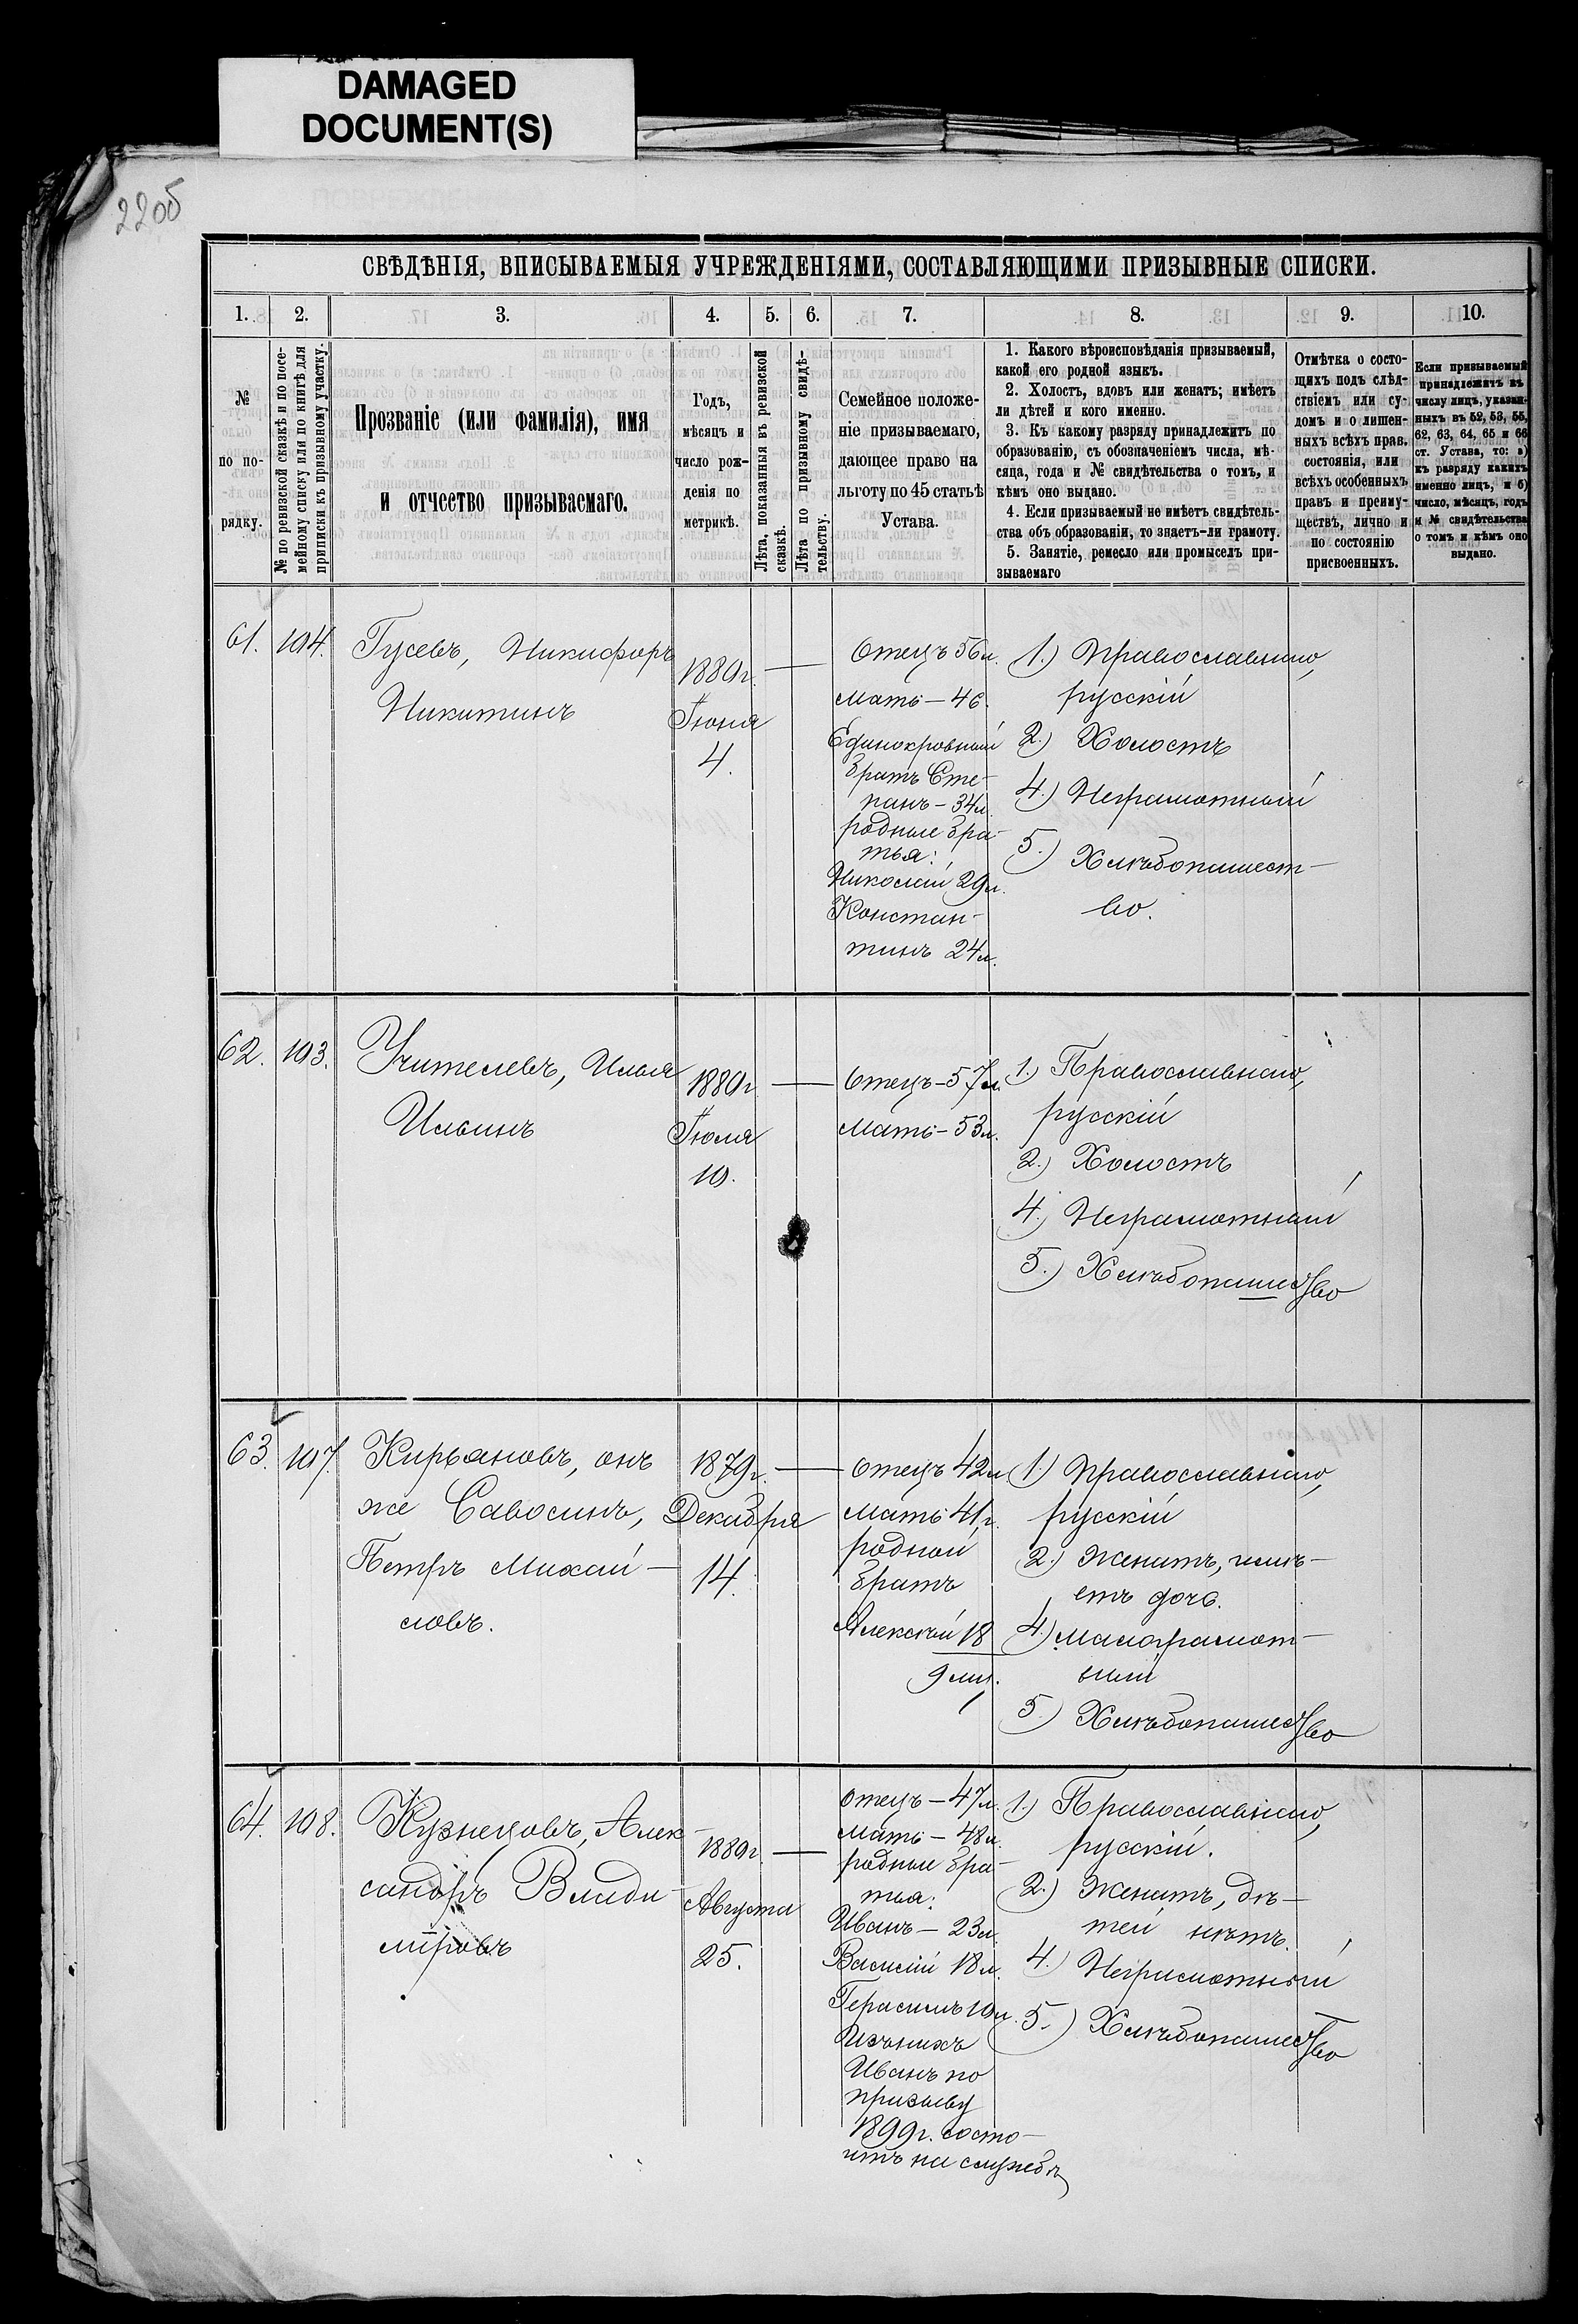 DAMAGED
DOCUMENT(S)
220б
СВѢДѢНІЯ, ВПИСЫВАЕМЫЯ УЧРЕЖДЕНІЯМИ, СОСТАВЛЯЮЩИМИ ПРИЗЫВНЫЕ СПИСКИ.
1. 2. 3. 4. 5. 6. 7. 8. 9. 10.
№
по по-
рядку.
№ по ревизской сказкѣ и по посе-
мейному списку или по книгѣ для
приписки къ призывному участку.
Прозваніе (или фамилія), имя
и отчество призываемаго.
Годъ,
мѣсяцъ и
число рож-
денія по
метрикѣ.
Лѣта, показанныя въ ревизской
сказкѣ.
Лѣта по призывному свидѣ-
тельству.
Семейное положе-
ніе призываемаго,
дающее право на
льготу по 45 статьѣ
Устава.
1. Какого вѣроисповѣданія призываемый,
какой его родной языкъ.
2. Холостъ, вдовъ или женатъ; имѣетъ
ли дѣтей и кого именно.
3. Къ какому разряду принадлежитъ по
образованію, съ обозначеніемъ числа, мѣ-
сяца, года и № свидѣтельства о томъ, и
кѣмъ оно выдано.
4. Если призываемый не имѣетъ свидѣтель-
ства объ образованіи, то знаетъ-ли грамоту.
5. Занятіе, ремесло или промыселъ при-
зываемаго
Отмѣтка о состо-
щихъ подъ слѣд-
ствіемъ или су-
домъ и о лишен-
ныхъ всѣхъ прав.
состоянія, или
всѣхъ особенныхъ
правъ и преиму-
ществъ, лично и
по состоянію
присвоенныхъ.
Если призываемый
принадлежитъ къ
числу лицъ, указан-
ныхъ въ 52, 53, 55,
62, 63, 64, 65 и 66
ст. Устава, то: а)
къ разряду какихъ
именно лицъ, и б)
число, мѣсяцъ, годъ
и № свидѣтельства
о томъ и кѣмъ оно
выдано.
61. 104. Гусевъ, Никифоръ
Никитинъ
1880г.
Іюня
4.
Отецъ 56л.
Мать – 46.
Единокровный
братъ Сте-
панъ – 34л.
родные бра-
тья:
Николай 29л.
Констан-
тинъ 24л.
1.) Православнаго,
русскій
2.) Холостъ
4.) Неграмотный
5.) Хлѣбопашест-
во.
62. 103. Учителевъ, Илья
Ильинъ
1880г
Іюля
10.
Отецъ – 57л.
Мать – 53л.
1.) Православнаго,
русскій
2.) Холостъ
4.) Неграмотный
5.) Хлѣбопашество
63. 107. Кирьяновъ, онъ
же Савосинъ,
Петръ Михай-
ловъ.
1879г.
Декабря
14.
отецъ 42л
Мать 41г.
родной
братъ
Алексѣй 18
9 мѣс.
1.) Православнаго,
русскій
2.) Женатъ, имѣ-
етъ дочь.
4.) малограмот-
ный
5.) Хлѣбопашество
64. 108. Кузнецовъ, Алек-
сандръ Влади-
міровъ
1880г.
Августа
25.
Отецъ – 47л.
Мать – 48л.
родные бра-
тья:
Иванъ – 23л.
Василій 18л.
Герасимъ 10л.
Изъ нихъ
Иванъ по
призыву
1899г. состо-
итъ на службѣ
1.) Православнаго,
русскій.
2.) Женатъ, дѣ-
тей нѣтъ.
4.) Неграмотный
5.) Хлѣбопашество